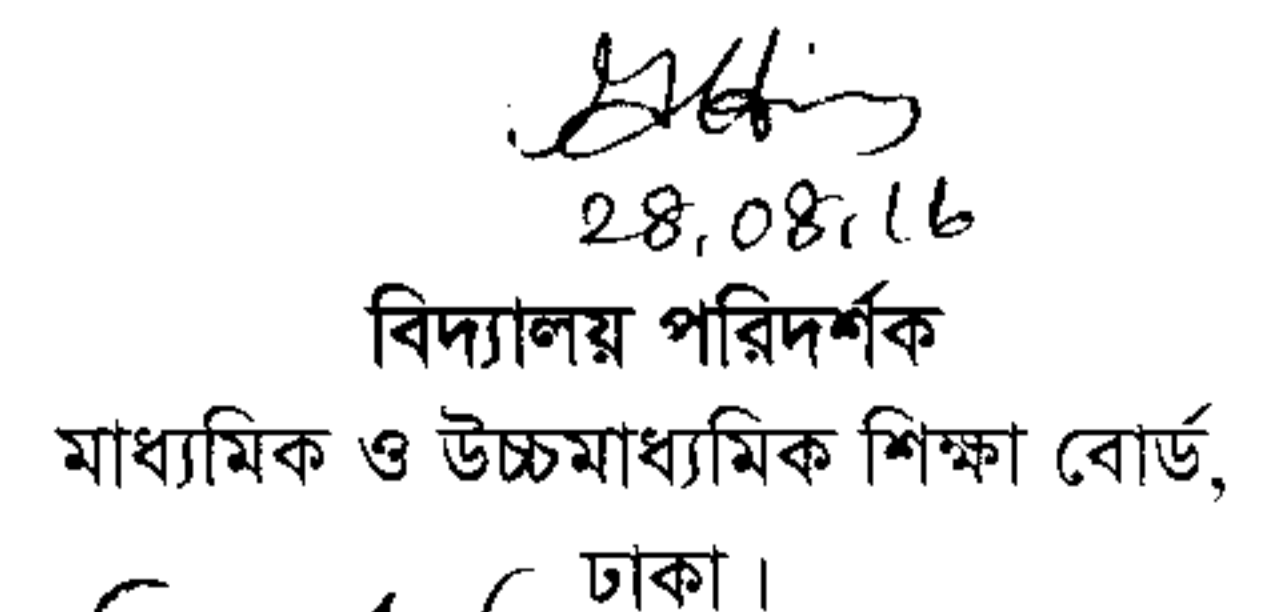 28.08.16
বিদ্যালয় পরিদর্শক
মাধ্যমিক ও উচ্চমাধ্যমিক শিক্ষা বোর্ড,
ঢাকা।